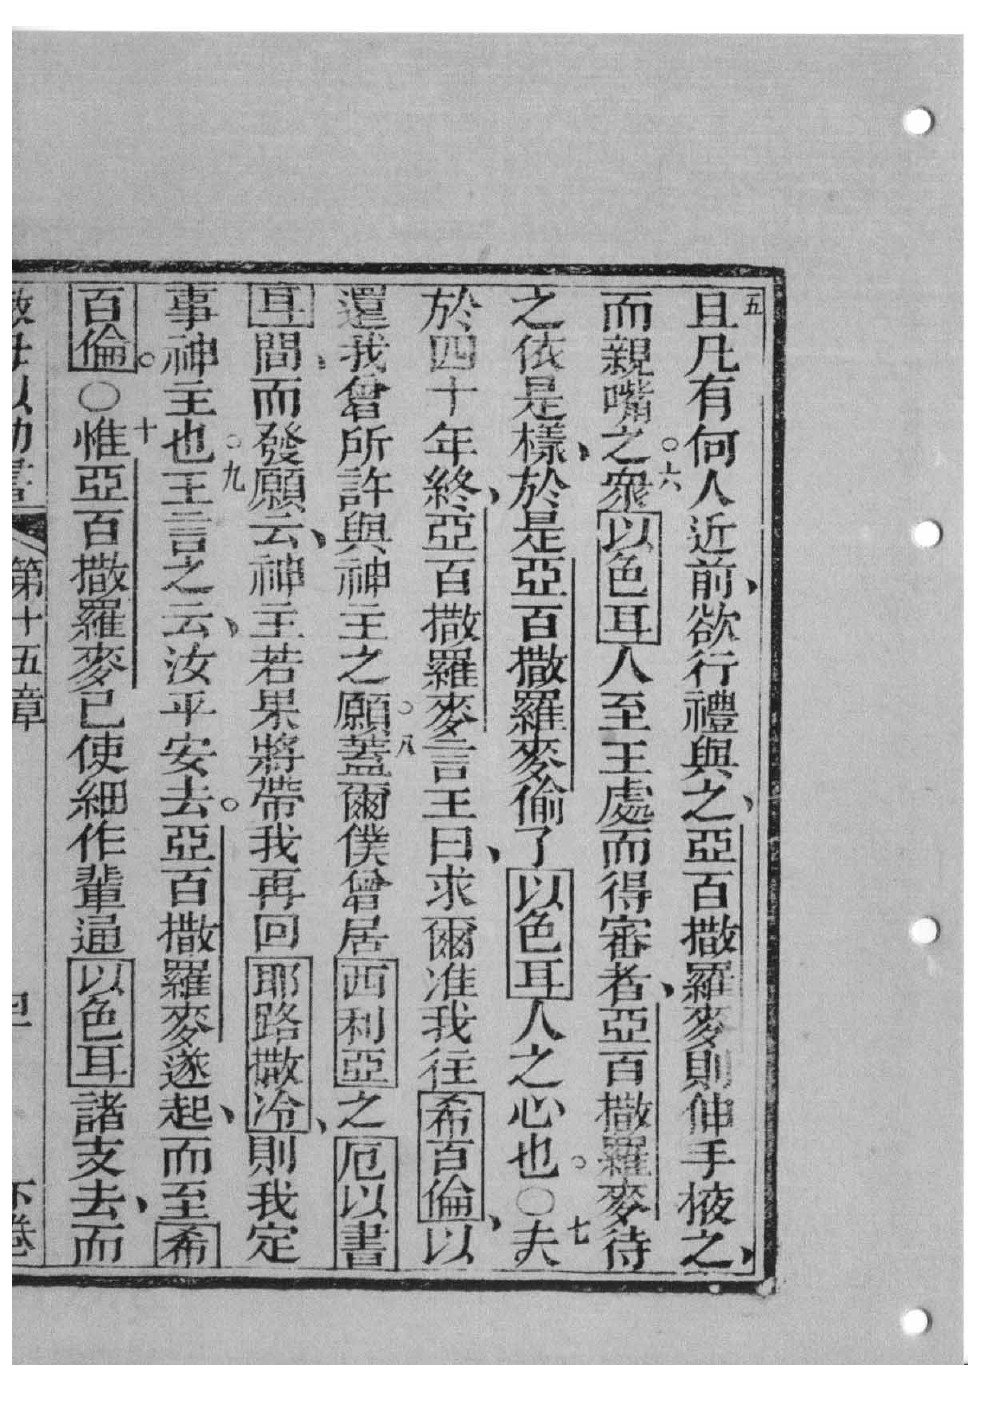 五且凡有何人近前、欲行禮與之、亞百撒羅麥則伸手掖之、
而親嘴之。六衆以色耳人至王處而得審者、亞百撒羅麥待
之依是樣、於是亞百撒羅麥偷了以色耳人之心也。〇七夫
於四十年終、亞百撒羅麥言王曰、求爾准我往希百倫、以
還我曾所許與神主之願。八蓋爾僕曾居西利亞之厄以書
耳間、而發願云、神主若果將帶我再回耶路撒冷、則我定
事神主也。九王言之云、汝平安去。亞百撒羅麥遂起、而至希
百倫。〇十惟亞百撒羅麥已使細作輩通以色耳諸支去、而
第十五章 下卷